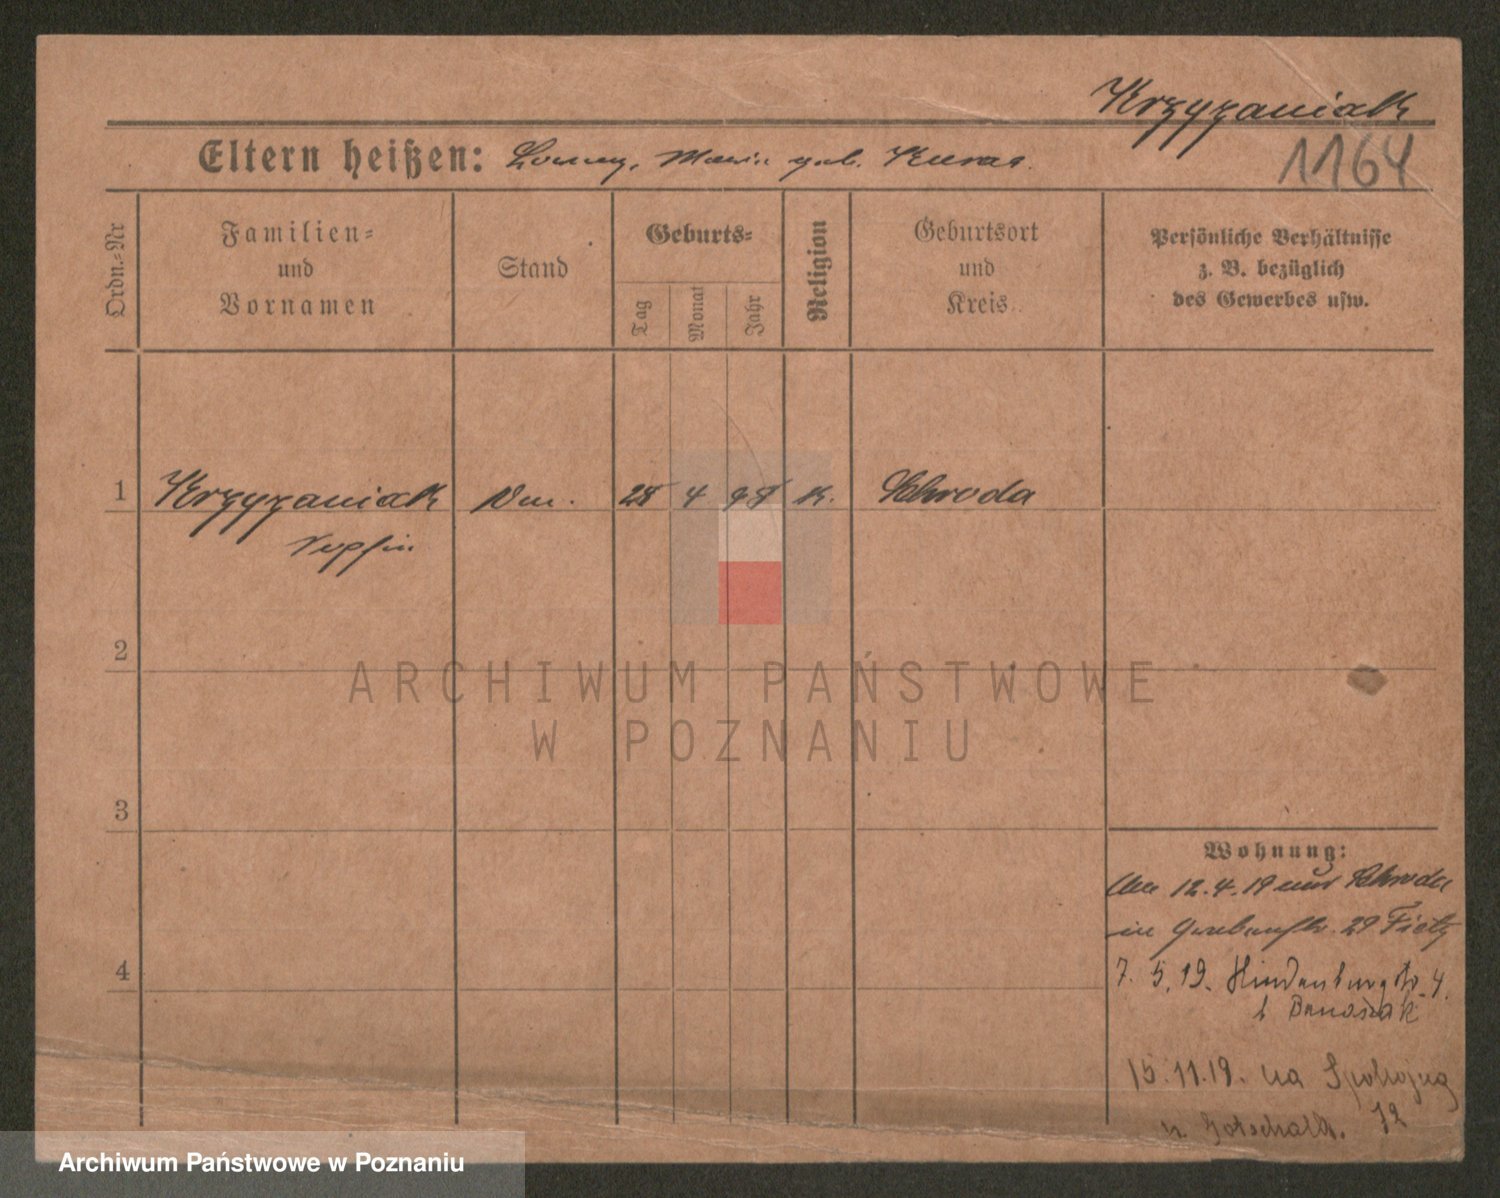 Krzyzaniak
1164
Eltern heißen: Maria geb.
Ordn.-Nr
Familien-
und
Vornamen
Stand
Geburts-
Tag
Monat
Jahr
Religion
Geburtsort
und
Kreis
Persönliche Verhältnisse
z. B. bezüglich
des Gewerbes usw.
1 Krzyzaniak 28 4 98 K. Schroda
Sophie
2
3
4
Wohnung:
12.4.19 aus Schroda
in 29 Fietz
7. 5. 19. Hindenburgstr. 4.
b Banaszak
15.11.19. na Spokojną
u. Gotschalk. 12
ARCHIWUM PAŃSTWOWE
W POZNANIU
Archiwum Państwowe w Poznaniu